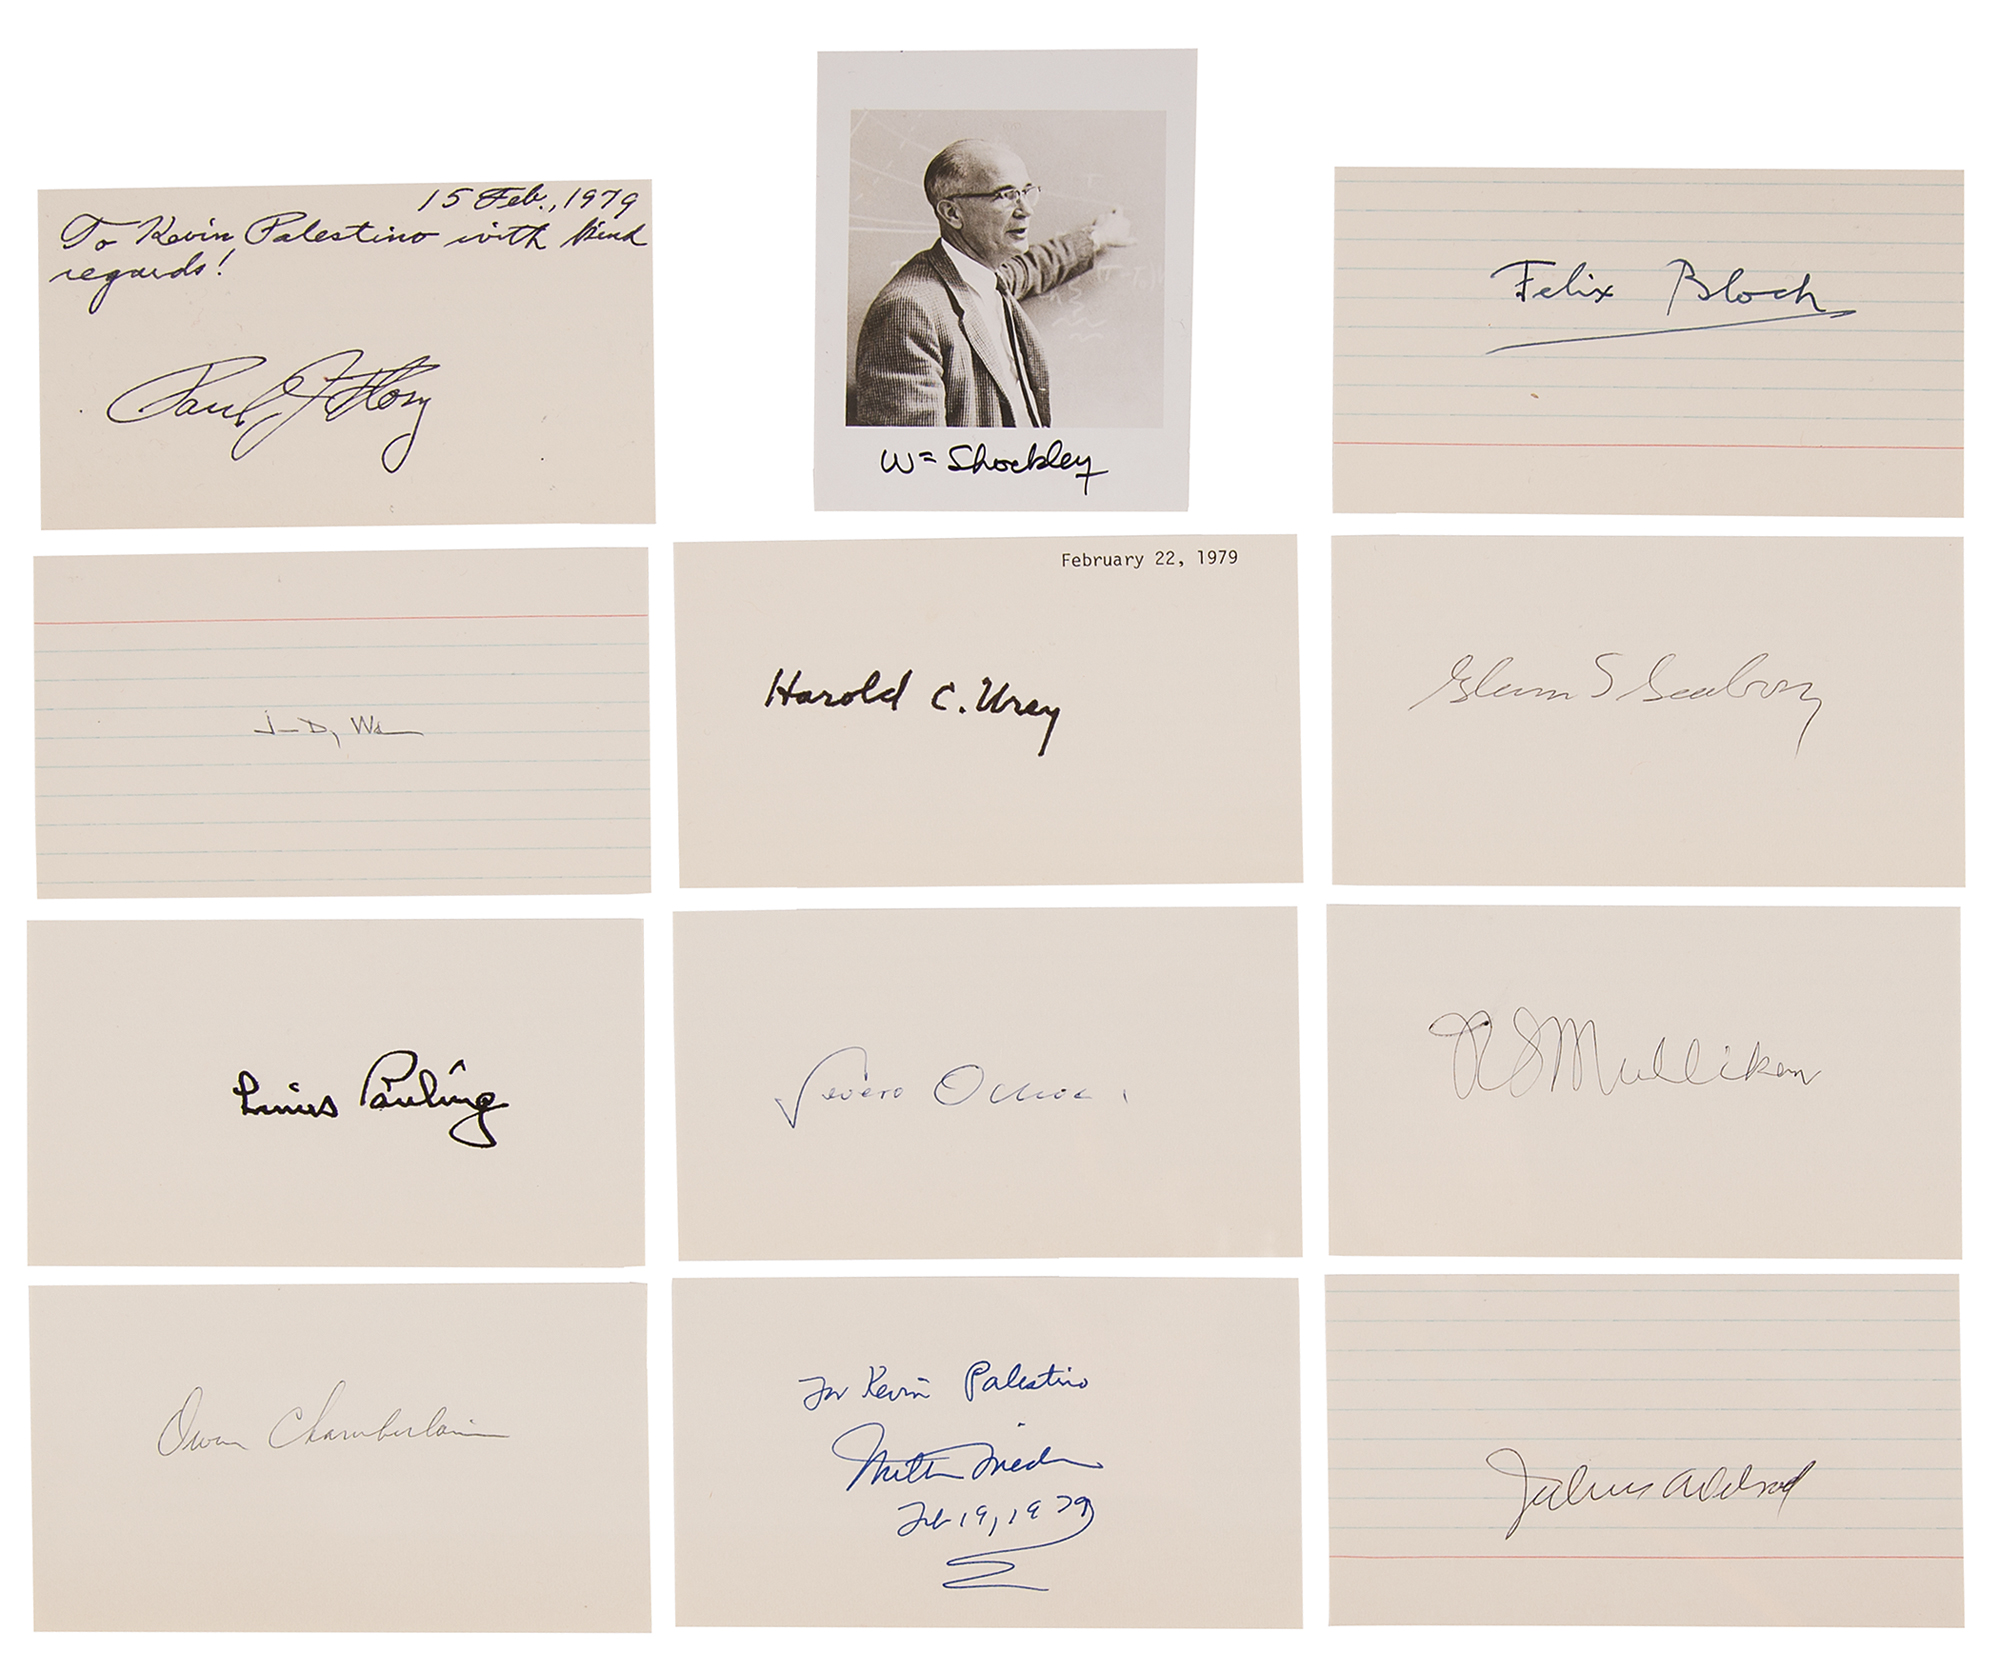 15 Feb., 1979
To Kevin Palestino with kind
regards!
Paul J. Flory
Wm Shockley
Felix Bloch
J D. Wa
February 22, 1979
Harold C. Urey
Glenn T Seaborg
Linus Pauling
Severo Ochoa
RS Mulliken
Owen Chamberlain
For Kevin Palestino
Milton Friedman
Feb 19, 1979
Julius Axelrod